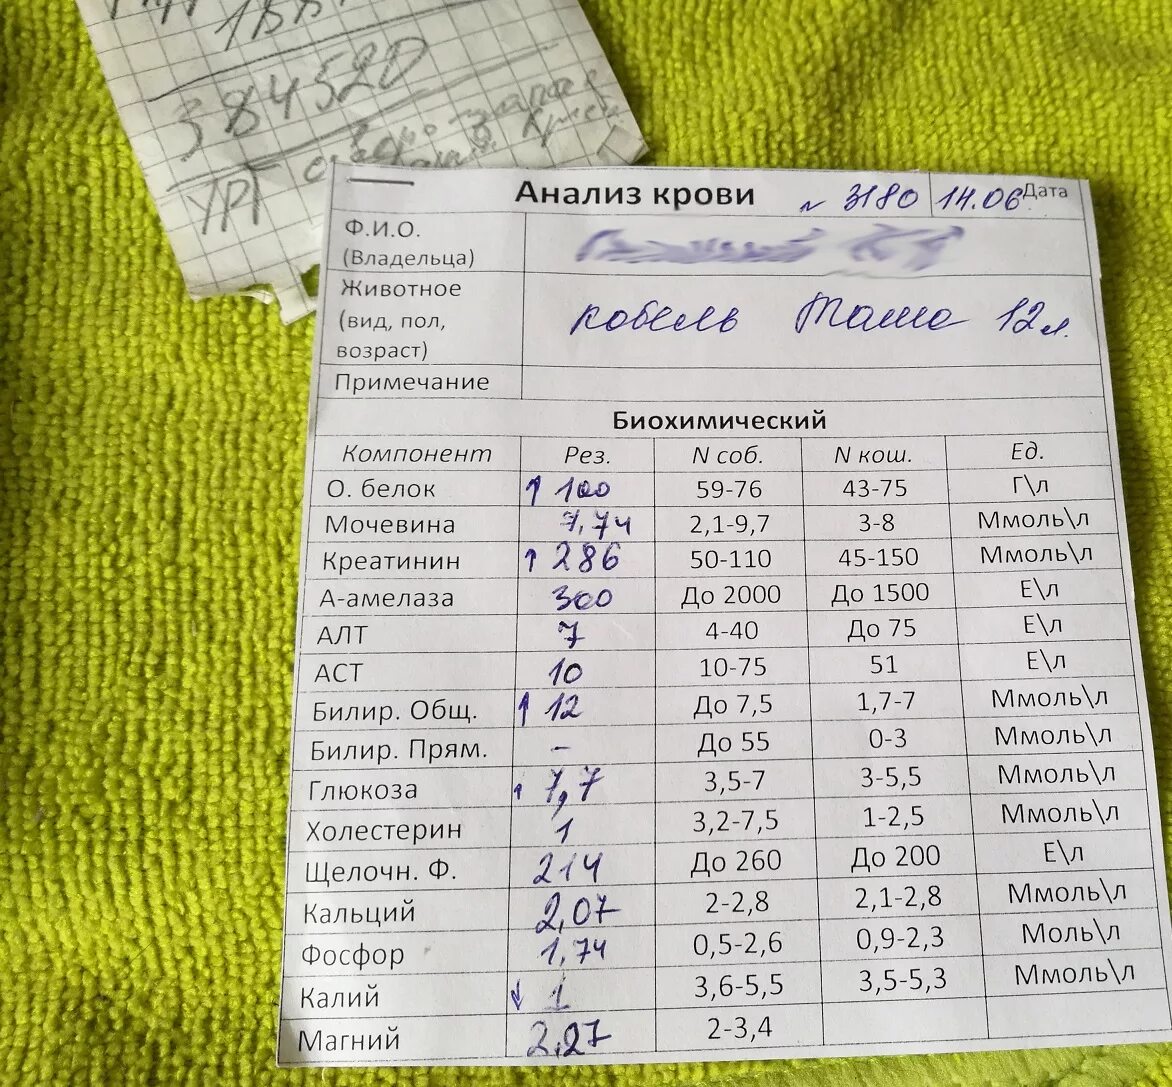 188
384520
УРГ
Анализ крови № 3180 14.06 Дата
Ф.И.О.
(Владельца)
Животное
(вид, пол, возраст) кобель Таше 12 л.
Примечание
Биохимический
Компонент Рез. N соб. N кош. Ед.
О. белок ↑ 100 59-76 43-75 Г\л
Мочевина 7,74 2,1-9,7 3-8 Ммоль\л
Креатинин ↑ 286 50-110 45-150 Ммоль\л
А-амелаза 300 До 2000 До 1500 Е\л
АЛТ 7 4-40 До 75 Е\л
АСТ 10 10-75 51 Е\л
Билир. Общ. ↑ 12 До 7,5 1,7-7 Ммоль\л
Билир. Прям. – До 55 0-3 Ммоль\л
Глюкоза ↑ 7,7 3,5-7 3-5,5 Ммоль\л
Холестерин 1 3,2-7,5 1-2,5 Ммоль\л
Щелочн. Ф. 214 До 260 До 200 Е\л
Кальций 2,07 2-2,8 2,1-2,8 Ммоль\л
Фосфор 1,74 0,5-2,6 0,9-2,3 Моль\л
Калий ↓ 1 3,6-5,5 3,5-5,3 Ммоль\л
Магний 2,27 2-3,4